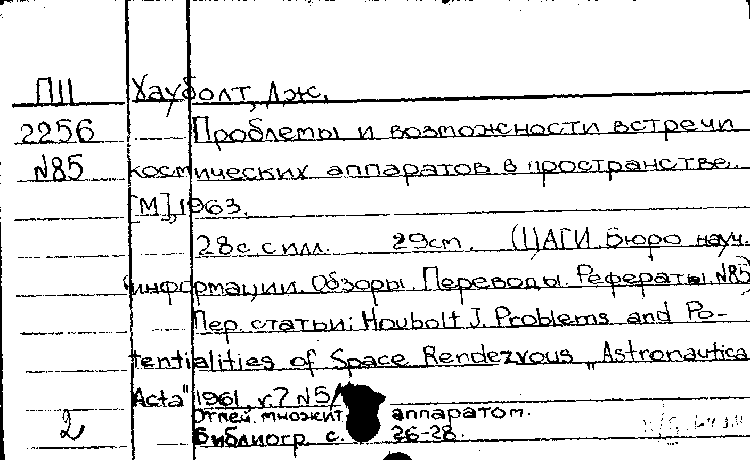 ПII Хауболт, Дж.
2256 Проблемы и возможности встречи
N85 космических аппаратов в пространстве.
[М], 1963.
28с. с илл. 29cm. (ЦАГИ. Бюро науч.
информации. Обзоры. Переводы. Рефераты. N85)
Пер. статьи: Houbolt J. Problems and Po-
tentialities of Space Rendezvous „Astronautica
Acta" 1961, v.7 N5/
Отпеч. множит. аппаратом.
2 Библиогр. с. 26-28.